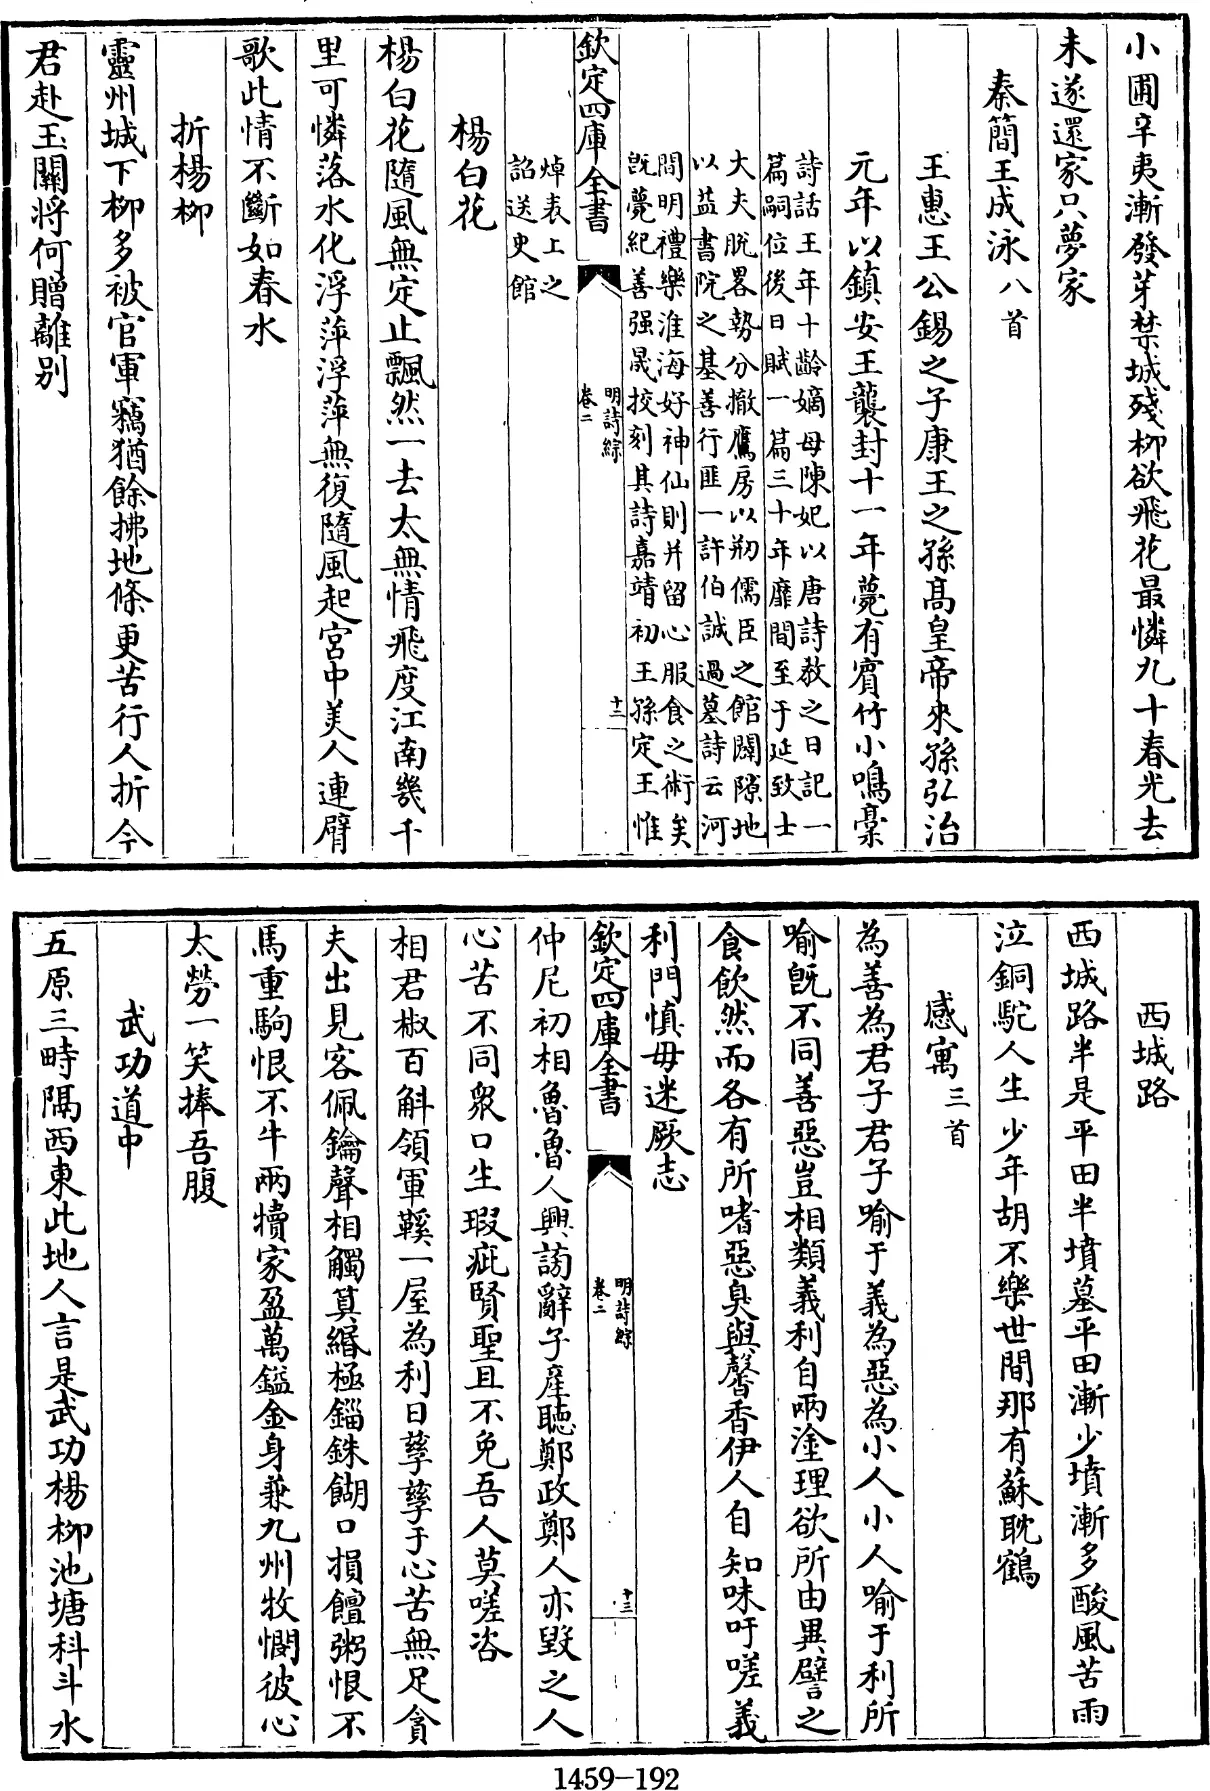 小圃辛夷漸發芽禁城殘柳欲飛花最憐九十春光去
未遂還家只夢家
秦簡王成泳八首
王惠王公錫之子康王之孫高皇帝來孫弘治
元年以鎮安王襲封十一年薨有賓竹小鳴藁
詩話王年十齡嫡母陳妃以唐詩教之日記一
篇嗣位後日賦一篇三十年靡間至于延致士
大夫脫畧勢分撤鷹房以剏儒臣之館闢隙地
以益書院之基善行匪一許伯誠過墓詩云河
間明禮樂淮海好神仙則并留心服食之術矣
旣薨紀善强晟挍刻其詩嘉靖初王孫定王惟
焯表上之
詔送史館
欽定四庫全書
明詩綜
卷二
十二
楊白花
楊白花隨風無定止飄然一去太無情飛度江南幾千
里可憐落水化浮萍浮萍無復隨風起宮中美人連臂
歌此情不斷如春水
折楊柳
靈州城下柳多被官軍竊猶餘拂地條更苦行人折今
君赴玉關將何贈離别
西城路
西城路半是平田半墳墓平田漸少墳漸多酸風苦雨
泣銅駝人生少年胡不樂世間那有蘇耽鶴
感寓三首
為善為君子君子喻于義為惡為小人小人喻于利所
喻旣不同善惡豈相類義利自兩塗理欲所由異譬之
食飲然而各有所嗜惡臭與馨香伊人自知味吁嗟義
利門慎毋迷厥志
欽定四庫全書
明詩綜
卷二
十三
仲尼初相魯魯人興謗辭子產聽鄭政鄭人亦毀之人
心苦不同衆口生瑕疵賢聖且不免吾人莫嗟咨
相君椒百斛領軍鞵一屋為利日孳孳于心苦無足貪
夫出見客佩鑰聲相觸算緡極錙銖餬口損饘粥恨不
馬重駒恨不牛兩犢家盈萬鎰金身兼九州牧憫彼心
太勞一笑捧吾腹
武功道中
五原三畤隅西東此地人言是武功楊柳池塘科斗水
1459-192